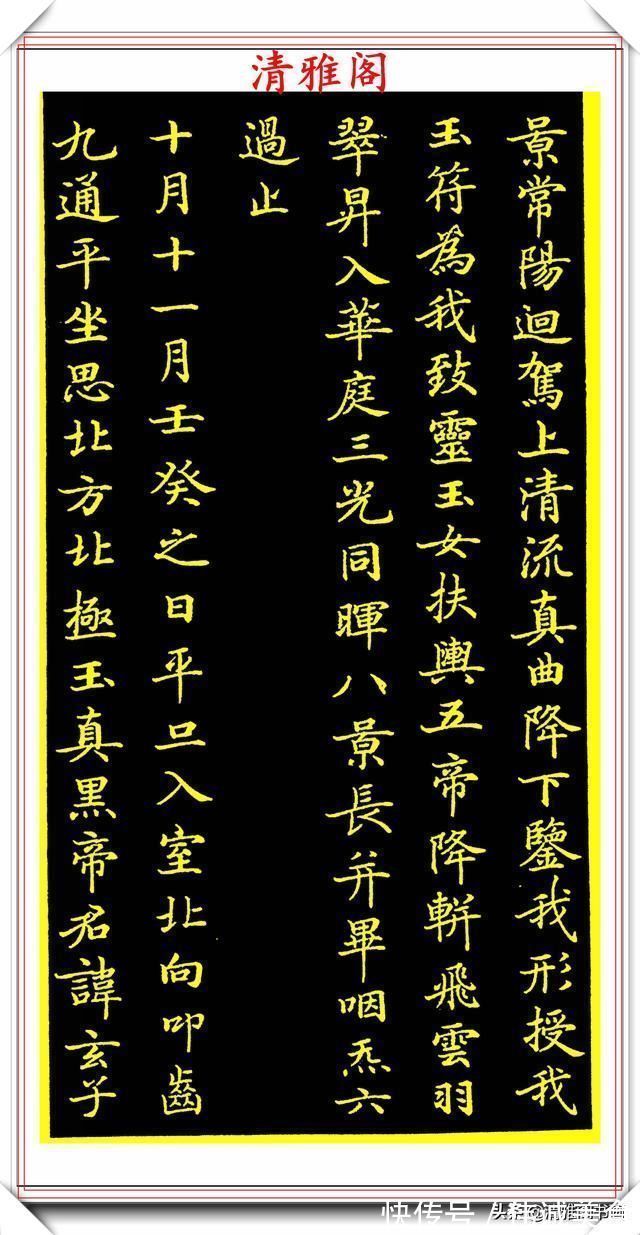 清雅阁
景常陽迴駕上清流真曲降下鑒我形授我
玉符為我致靈玉女扶輿五帝降軿飛雲羽
翠昇入華庭三光同暉八景長并畢咽炁六
過止
十月十一月壬癸之日平旦入室北向叩齒
九通平坐思北方北極玉真黑帝君諱玄子
快传号